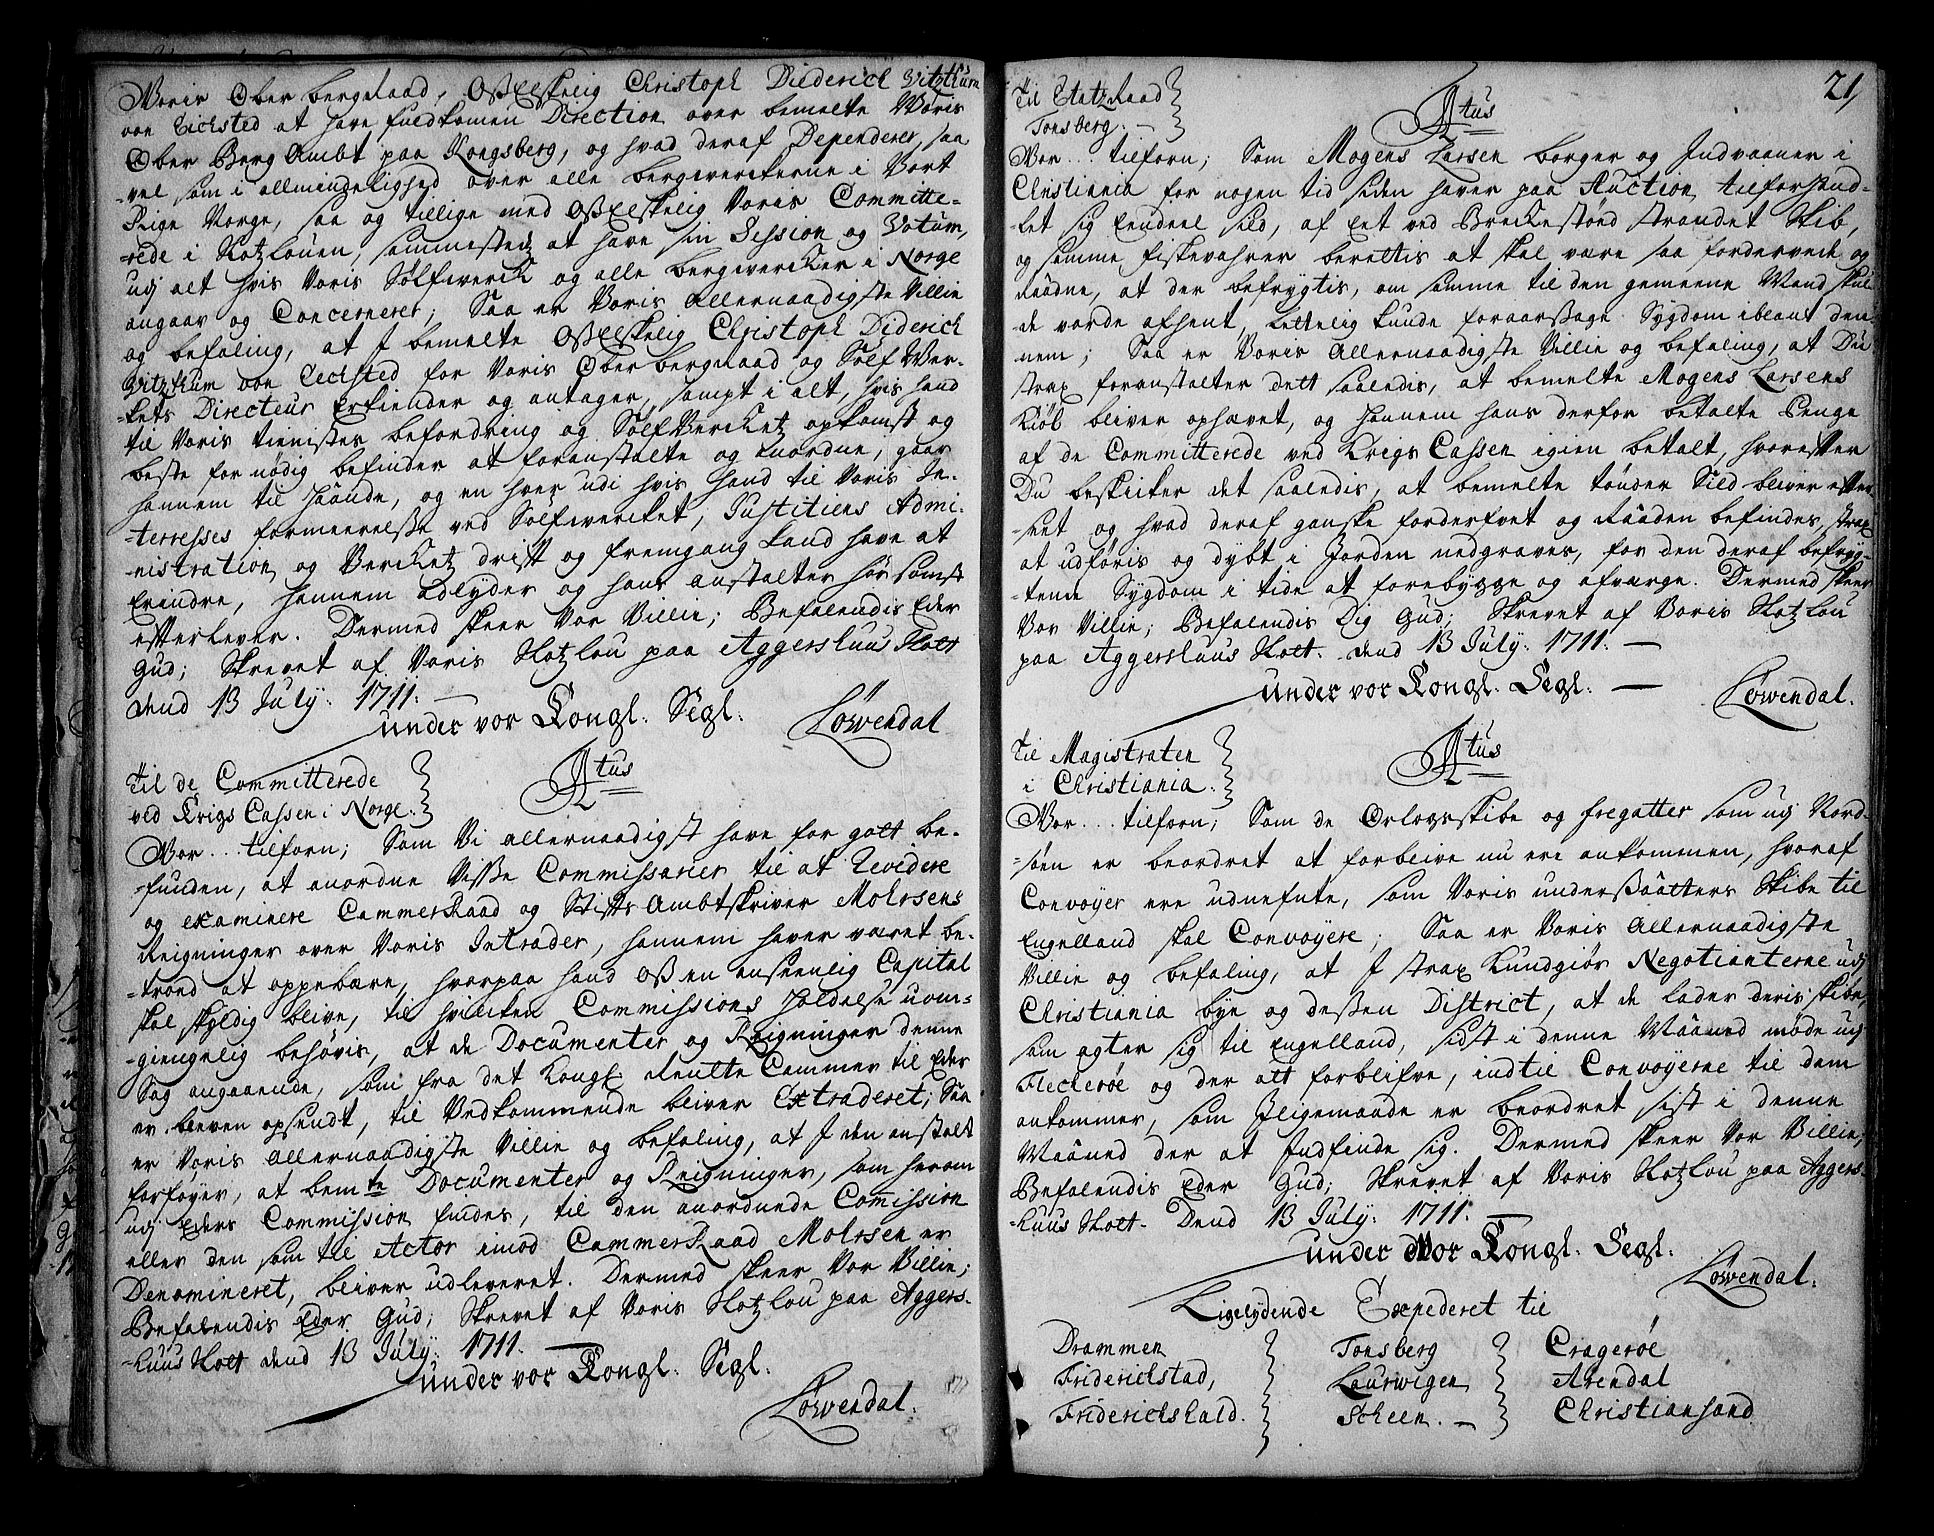 Voris Ober bergRaad, Oß Elskelig Christoph Diederich Vitzthum
von Eichsted at have fuldkomen Direction over bemelte Voris
Ober Berg Ambt paa Kongsberg, og hvad deraf Dependerer, saa
-vel som i allmindelighed over alle bergwerckerne i Vort
Rige Norge, saa og tillige med Oß Elskelig Voris Committe-
-rede i Slotzlouen, sammesteds at have sin Session og Votum,
udj alt hvis Voris Sølfwerck og alle bergwercker i Norge
angaar og Concernerer; Saa er Voris Allernaadigste Villie
og befaling, at I bemelte Oß Elskelig Christoph Diderich
Vitzthum von Eechsted for Voris Ober bergRaad og Sølf Wer-
-kets Directeur Erkiender og antager, sampt i alt, hvis hand
til Voris tienistes befordring og SølfVercketz opkomst og
beste for nödig befinder at foranstalte og anordne, gaar
hannem til Haande, og en hver udi hvis hand til Voris In-
-terresses formeerelße ved Sølfwercket, Justitiens Admi-
-nistration og Vercketz drift og fremgang kand have at
Erindre, hannem adlyder og hans anstalter hør somst
efterlever. Dermed skeer Vor Villie; Befalendis Eder
Gud; Skrevet af Voris Slotzlou paa Aggershuus Slott
dend 13 July: 1711.
under vor Kongl. Segl.
Løwendal
Til de Committerede
ved Krigs Cassen i Norge.
Atus
Vor... tilforn; Som Vi allernaadigst have for gott be-
-funden, at anordne Visse Commissarier til at Revidere
og examinere CammerRaad og StiftsAmbtskriver Molrsens
Reigninger over Voris Intrader, hannem haver været be-
-troed at oppebære, hvorpaa hand Oß en anseenlig Capital
skal skyldig blive, til hvilcken Commissions Holdelse uom-
-giengelig behøvis, at de Documenter og Reigninger denne
Sag angaaende, som fra det Kongl. Rentte Cammer til Eder
er bleven opsendt, til Vedkommende bliver Extraderet; Saa
er Voris allernaadigste Villie og befaling, at I den anstalt
forføyer, at bemte Documenter og Reigninger, som herom
udj Eders Commission findes, til den anordnede Comission
eller den som til Actor imod CammerRaad Molrsen er
Denomineret, bliver udleveret. Dermed skeer Vor Villie;
Befalendis Eder Gud; Skrevet af Voris Slotzlou paa Aggers-
-huus Slott dend 13 July: 1711.
under vor Kongl. Segl.
Løwendal.
21,
Til EtatzRaad
Tonsberg.
Atus
Vor... tilforn; Som Mogens Larsen borger og Indvaaner i
Christiania for nogen tid siden haver paa Auction tilforhand-
-let sig Eendeel sild, af Eet ved Brekkestøed strandet Skib,
og samme fiskevahrer berettis at skal være saa fordervede og
Raadne, at der befrygtis, om samme til den gemeene Mand skul-
de vorde afhent, Lettelig kunde foraarsage Sygdom iblant den-
nem; Saa er Voris Allernaadigste Villie og befaling, at Du
strax foranstalter dett saaledis, at bemelte Mogens Larsens
Kiøb bliver ophævet, og Hannem hans derfor betalte Penge
af de Committerede ved Krigs Cassen igien betalt, hvorefter
Du beskicker det saaledis, at bemelte tönder Sild bliver efter-
-seet og hvad deraf ganske forderfvet og Raaden befindes, strax
at udføris og dybt i Jorden nedgraver, for den deraf befryg-
-tende Sygdom i tide at forebygge og afværge. Dermed skeer
Vor Villie; Befalendis Dig Gud; Skrevet af Voris Slotzlou
paa Aggershuus Slott. dend 13 July: 1711.
under vor Kongl. Segl.
Løwendal.
Til Magistraten
i Christiania.
Atus
Vor... tilforn; Som de Orlogsskibe og fregatter som udj Nord-
-søen er beordret at forblive nu ere ankommen, hvoraf
Convoyer ere udnefnte, som Voris undersaatters Skibe til
Engelland skal Convoyere; Saa er Voris Allernaadigste
Villie og befaling, at I strax kundgiør Negotianterne udj
Christiania bye og deßen District, at de lader deris skibe,
som agter sig til Engelland, sidst i denne Maaned møde udj
Fleckerøe og der att forblifve, indtil Convoyerne til dem
ankommer, som Jligemaade er beordret sist i denne
Maaned der at Indfinde sig. Dermed skeer Vor Villie;
Befalendis Eder Gud; Skrevet af Voris Slotzlou paa Aggers-
-huus Slott. Dend 13 July: 1711.
under Vor Kongl. Segl.
Løwendal.
Ligelydende Expederet til
Drammen Tonsberg Cragerøe
Friderichstad, Laurwigen Arendal
Friderichshald. Scheen. Christiansand